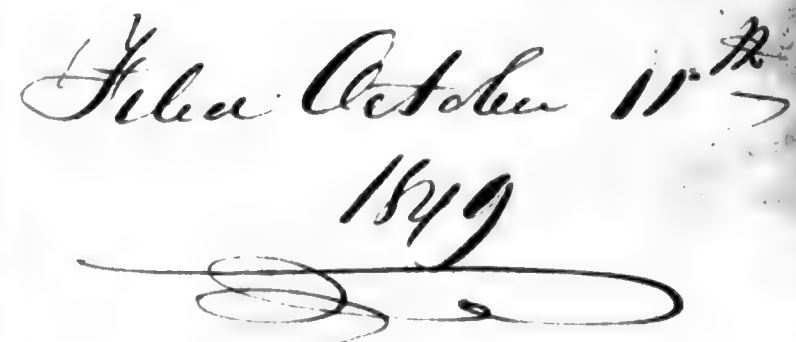 Filed October 11th
1849